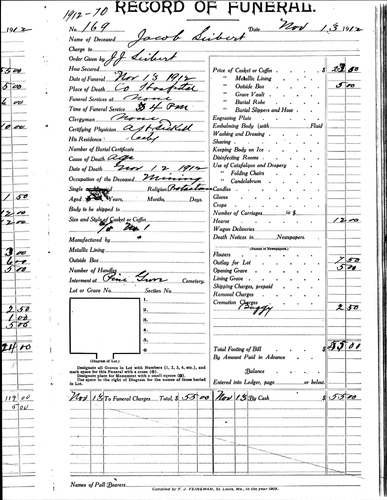 1912-70 RECORD OF FUNERAL.
No. 169 Date Nov 13 1912
Name of Deceased Jacob Siebert
Charge to
Order Given by J J Siebert
How Secured
Date of Funeral Nov 13 1912
Place of Death Co Hospital
Funeral Services at
Time of Funeral Service 4 PM
Clergyman None
Certifying Physician
His Residence City
Number of Burial Certificate
Cause of Death Age
Date of Death Nov 12 1912
Occupation of the Deceased Mining
Single Religion Protestant
Aged Years, Months, Days.
Body to be shipped to
Size and Style of Casket or Coffin
6/0 No 1
Manufactured by
Metallic Lining
Outside Box
Number of Handles
Interment at Pine Grove Cemetery.
Lot or Grave No. Section No.
1.
2.
3.
4.
5.
6.
(Diagram of Lot.)
Designate all Graves in Lot with Numbers (1, 2, 3, 4, etc.), and
mark space for this Funeral with a cross
Designate place for Monument with a small square
Use space to the right of Diagram for the names of those buried
in Lot.
Price of Casket or Coffin $
" Metallic Lining
" Outside Box 5 00
" Grave Vault
" Burial Robe
" Burial Slippers and Hose
Engraving Plate
Embalming Body (with Fluid
Washing and Dressing
Shaving
Keeping Body on Ice
Disinfecting Rooms
Use of Catafalque and Drapery
" Folding Chairs
" Candelabrum
Candles
Gloves
Crape
Number of Carriages @ $
Hearse 12 00
Wagon Deliveries
Death Notices in Newspapers.
(Names of Newspapers)
Flowers
Outlay for Lot 7 50
Opening Grave 5 00
Lining Grave
Shipping Charges, prepaid
Removal Charges
Cremation Charges
Buggy 2 50
Total Footing of Bill $ 55 00
By Amount Paid in Advance
Balance
Entered into Ledger, page or below.
Nov 13 To Funeral Charges Total, $ 55 00 Nov 13 By Cash $ 55 00
Names of Pall Bearers
Compiled by F. J. FEINEMAN, St. Louis, Mo., in the year 1903.